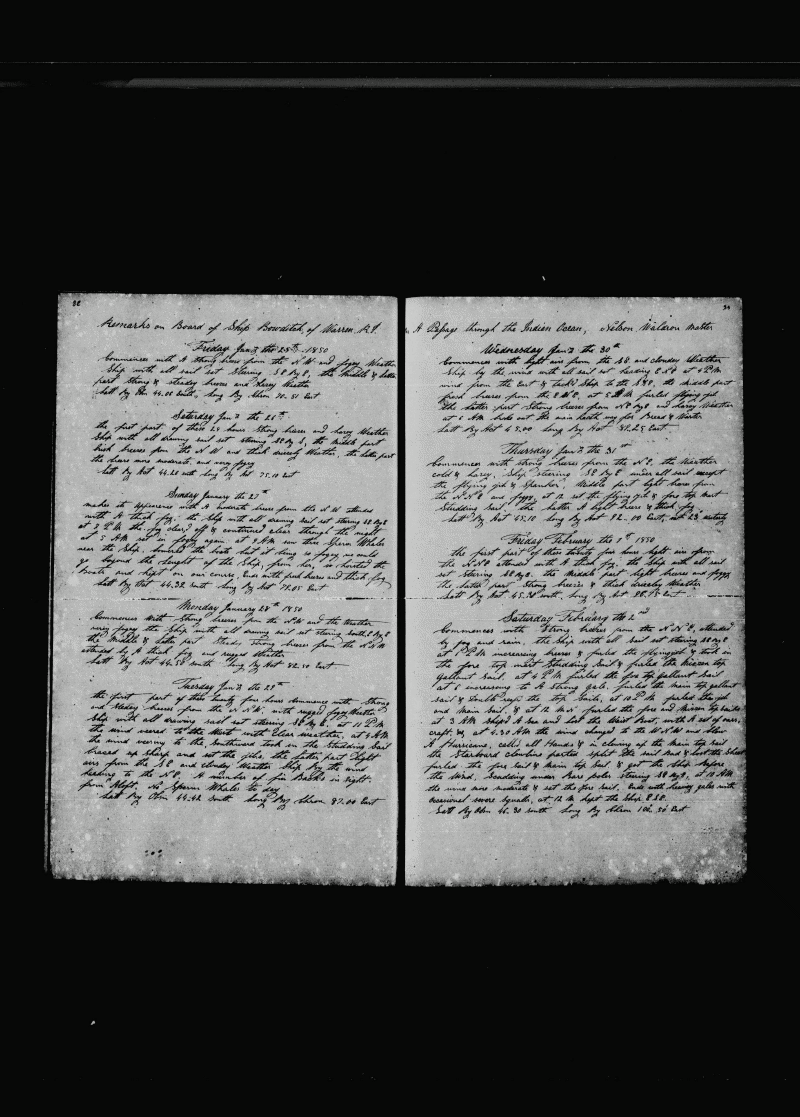 32
Remarks on Board of Ship Bowditch, of Warren R.I.
Friday Jany the 25th 1850
Commences with A Strong breeze from the N.W and foggy Weather
Ship with all sail set Stering SE By E, the Middle & latter
part Strong & steady breeze and Hazey Weather
Latt By Obn 44.00 South, Long By Chron 70.51 East
Saturday Jany the 26th
the first part of these 24 hours Strong breeze and hazey Weather
Ship with all drawing sail set stering SE By E, the Middle part
fresh breezes from the N W and thick drizely Weather, the latter part
the breeze more moderate, and very foggy
Latt By Act 44.20 South Long By Act 75.10 East
Sunday January the 27th
makes its appearence with A moderate breeze from the N W attended
with A thick fog, the Ship with all drawing sail set stering SE By E
at 3 P.M the fog clear'd off & continued clear through the night
at 5 AM set in foggy again. at 9 AM saw three Sperm Whales
near the Ship. lowered the boats but it being so foggy we could
go beyond the lenght of the Ship, from her, so hoisted the
Boats and kept on our course, Ends with fresh breeze and thick fog
Latt By Act 44.32 South Long By Act 78.05 East
Monday January 28th 1850
Commences With Strong breezes from the N.W and the Weather
very foggy the Ship with all drawing sail set stering South E By E
the Middle & latter part Steady strong breezes from the N.N.W
attended by A thick fog and rugged Weather
Latt By Act 44.38 South Long By Act 82.50 East
Tuesday Jany the 29th
the first part of these twenty four hours commence with Strong
and Steady breezes from the N N.W. with rugged foggy Weather
Ship with all drawing sail set stering SE By E, at 11 P.M
the wind veered to the West with Clear weather, at 5 AM
the wind vering to the Southward took in the Studding Sail
braced up sharp and set the jibs, the latter part light
airs from the SE and cloudy Weather Ship By the wind
heading to the N E. A number of fin Backs in sight
from Aloft, No Sperm Whales to day
Latt By Obn 44.42 South Long By Chron 87.00 East
A Passage through the Indian Ocean, Nelson Waldron Master
Wednesday Jany the 30th
Commences with light airs from the SE and cloudey Weather
Ship by the wind with all sail set heading E.N.E at 4 P.M
wind from the East & tack'd Ship to the S.S.E, the middle part
fresh breezes from the E.N.E, at 5 AM furled flying jib
the latter part Strong breezes from NE By E and hazey Weather
at 6 AM broke out the main hatch way for Bread & Water
Latt By Act 45.00 Long By Act 87.25 East
Thursday Jany the 31st
Commences with strong breeze from the N E, the Weather
cold & hazey, Ship Stering SE By E under all sail except
the flying jib & Spanker, Middle part light breeze from
the N.N E and foggy, at 12 set the flying jib & fore top Mast
Studding Sail, the latter A light breeze & thick fog
Latt By Act 45.10 Long By Act 82.00 East,
Friday February the 1st 1850
the first part of these twenty four hours light airs from
the N.N.E attended with A thick fog, the Ship with all sail
set stering SE By E, the Middle part light breeze and foggy
the latter part Strong breezes & thick drizeley Weather
Latt By Act 45.30 South, Long By Act
Saturday February the 2nd
Commences with Strong breezes from the N.N.E, attended
by fog and rain, the Ship with all sail set stering SE By E
at 1 P M increasing breezes & furled the flying jib & took in
the fore top mast Studding Sail & furled the Mizzen top
gallant sail, at 4 P.M furled the fore top gallant sail
at 6 increasing to A Strong gale, furled the main top gallant
sail & Double reef the top Sails, at 10 P M furled the jib
and Main Sail, & at 12 furled the fore and Mizzen top sails
at 3 AM Ship'd A Sea and lost the Waist Boat, with A set of oars,
craft, &c, at 4.30 AM the wind changed to the W.N.W and blew
A Hurricane, called all Hands & in clewing up the Main top sail
the Starboard clewline parted split the sail bad & lost the sheet
furled the fore sail & Main top Sail & got the Ship before
the Wind, Scudding under Bare poles stering SE By E, at 10 AM
the wind more moderate & set the fore sail, Ends with heavy gales with
occasional severe squalls, at 12 M kept the Ship E.S.E.
Latt By Obn 46.30 South Long By Chron